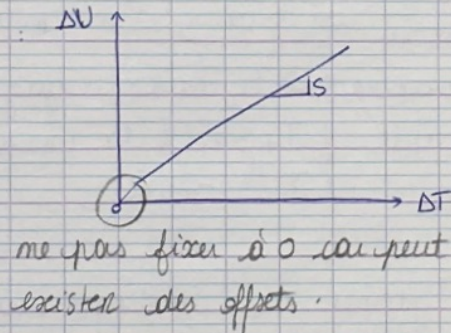 ΔU
S
0
ΔT
ne pas fixer à 0 car peut
exister des offsets.